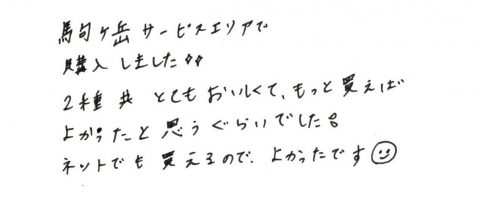 馬句ヶ岳サービスエリアで
購入しました♪♪
2種共とてもおいしくて、もっと買えば
よかったと思うぐらいでした。
ネットでも買えるので、よかったです☺